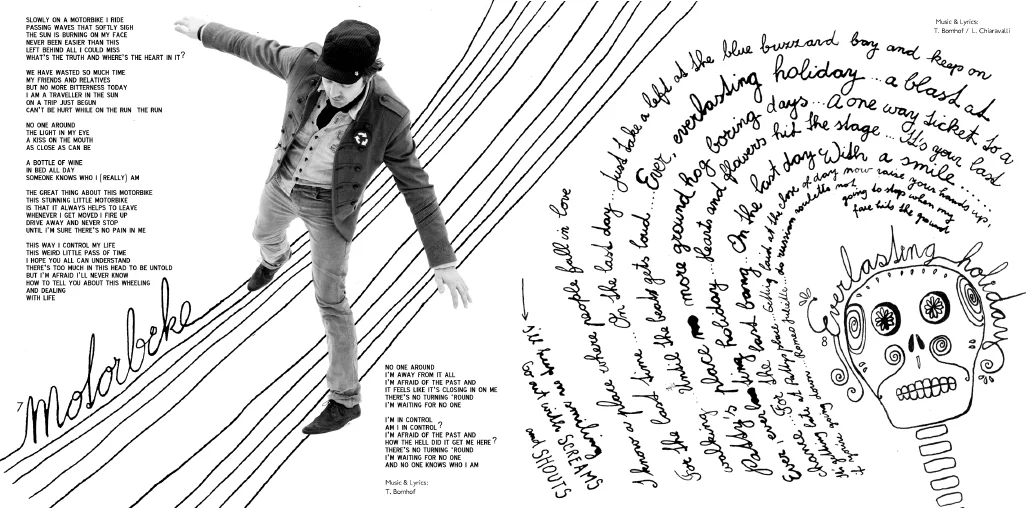 SLOWLY ON A MOTORBIKE I RIDE
PASSING WAVES THAT SOFTLY SIGH
THE SUN IS BURNING ON MY FACE
NEVER BEEN EASIER THAN THIS
LEFT BEHIND ALL I COULD MISS
WHAT'S THE TRUTH AND WHERE'S THE HEART IN IT?
WE HAVE WASTED SO MUCH TIME
MY FRIENDS AND RELATIVES
BUT NO MORE BITTERNESS TODAY
I AM A TRAVELLER IN THE SUN
ON A TRIP JUST BEGUN
CAN'T BE HURT WHILE ON THE RUN THE RUN
NO ONE AROUND
THE LIGHT IN MY EYE
A KISS ON THE MOUTH
AS CLOSE AS CAN BE
A BOTTLE OF WINE
IN BED ALL DAY
SOMEONE KNOWS WHO I (REALLY) AM
THE GREAT THING ABOUT THIS MOTORBIKE
THIS STUNNING LITTLE MOTORBIKE
IS THAT IT ALWAYS HELPS TO LEAVE
WHENEVER I GET MOVED I FIRE UP
DRIVE AWAY AND NEVER STOP
UNTIL I'M SURE THERE'S NO PAIN IN ME
THIS WAY I CONTROL MY LIFE
THIS WEIRD LITTLE PASS OF TIME
I HOPE YOU ALL CAN UNDERSTAND
THERE'S TOO MUCH IN THIS HEAD TO BE UNTOLD
BUT I'M AFRAID I'LL NEVER KNOW
HOW TO TELL YOU ABOUT THIS WHEELING
AND DEALING
WITH LIFE
7 Motorbike
NO ONE AROUND
I'M AWAY FROM IT ALL
I'M AFRAID OF THE PAST AND
IT FEELS LIKE IT'S CLOSING IN ON ME
THERE'S NO TURNING 'ROUND
I'M WAITING FOR NO ONE
I'M IN CONTROL
AM I IN CONTROL?
I'M AFRAID OF THE PAST AND
HOW THE HELL DID IT GET ME HERE?
THERE'S NO TURNING 'ROUND
I'M WAITING FOR NO ONE
AND NO ONE KNOWS WHO I AM
Music & Lyrics:
T. Bornhof
Music & Lyrics:
T. Bornhof / L. Chiaravalli
I know a place where people fall in love
On the last day... Just take a left at the blue buzzard bay and keep on
last time... the beats gets loud... Ever, everlasting holiday... a blast at
For the
Until the more ground hog boring days... A one way ticket to a
walking place... hearts and flowers hit the stage... It's your last
Patty's holiday... On the last day With a smile......
Ever, ever the last bang
chance... For the place... Getting laid at the close of day now raise your hands up,
Romeo Juliette... do russian roulette not going to stop when my
face hits the ground
I'll keep on smiling
Go out with SCREAMS
and SHOUTS
Everlasting holiday
8